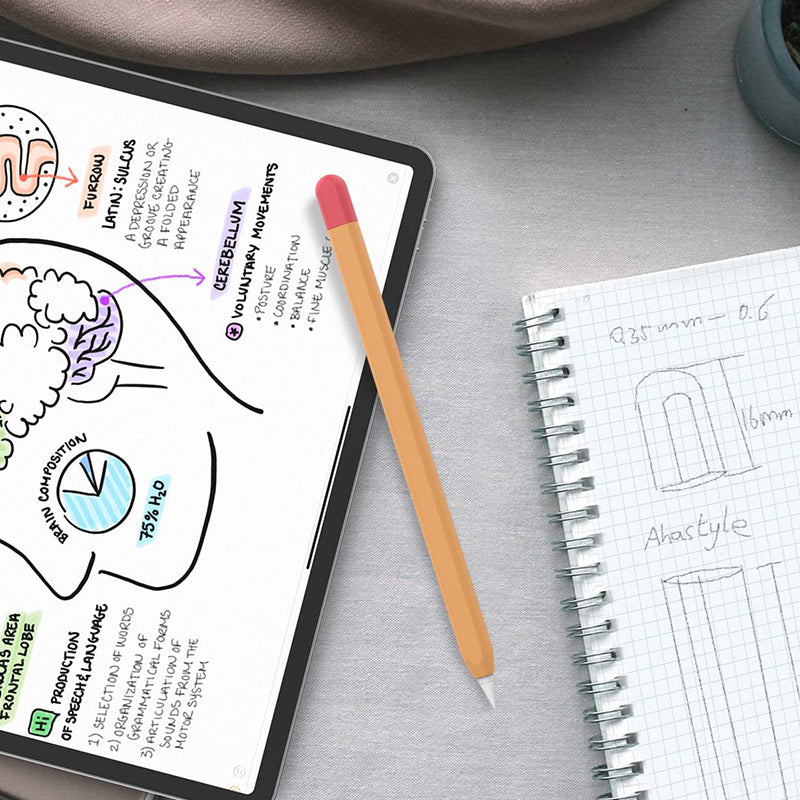 FURROW
LATIN: SULCUS
A DEPRESSION OR
GROOVE CREATING
A FOLDED
APPEARANCE
CEREBELLUM
VOLUNTARY MOVEMENTS
• POSTURE
• COORDINATION
• BALANCE
• FINE MUSCLE
BRAIN COMPOSITION
75% H₂O
AREA
FRONTAL LOBE
Hi PRODUCTION
OF SPEECH & LANGUAGE
1) SELECTION OF WORDS
2) ORGANIZATION OF
GRAMMATICAL FORMS
3) ARTICULATION OF
SOUNDS FROM THE
MOTOR SYSTEM
0.35 mm - 0.6
16mm
Ahastyle